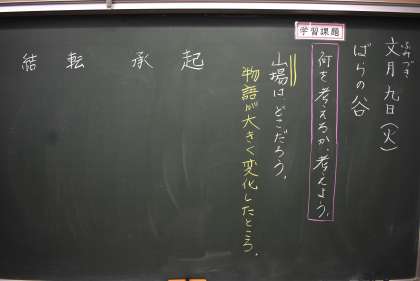 文月九日(火)
ふみづき
ばらの谷
学習課題
何を考えるか、考えよう。
山場は、どこだろう。
物語が大きく変化したところ。
起
承
転
結